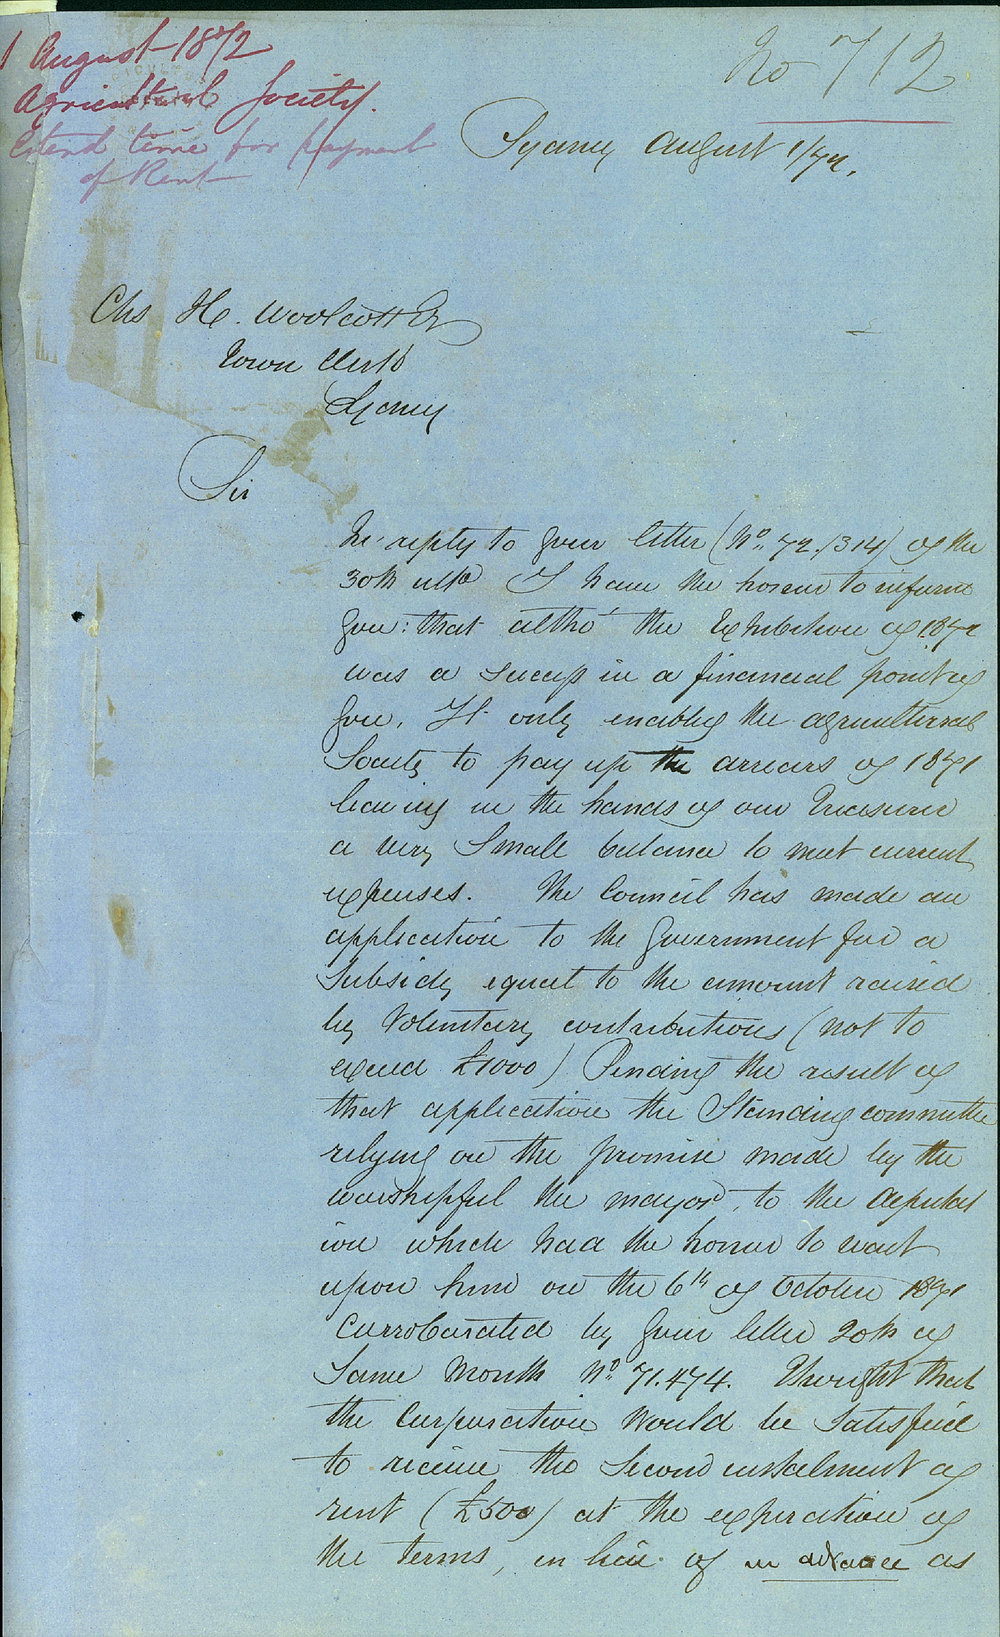 1 August 1872
Agricultural Society.
Extend time for payment
of Rent
No 712
Sydney August 1/72.
Chs H. Woolcott Esq
Town Clerk
Sydney
Sir
In reply to your letter (No. 72./314) of the
30th ulto I have the honor to inform
you: that altho' the Exhibition of 1872
was a success in a financial point of
you. It only enabled the agricultural
Society to pay up the arrears of 1871
leaving in the hands of our Treasurer
a very Small balance to meet current
expenses. The Council has made an
application to the Government for a
Subsidy equal to the amount raised
by Voluntary contributions (not to
exceed £1000) Pending the result of
that application the Standing committee
relying on the promise made by the
worshipful the mayor, to the deputat
ion which had the honor to wait
upon him on the 6th of October 1871
Corroborated by your letter 20th of
Same Month No. 71.474. Thought that
the Corporation would be Satisfied
to receive the Second instalment of
rent (£500) at the expiration of
the terms, in lieu of in advance as